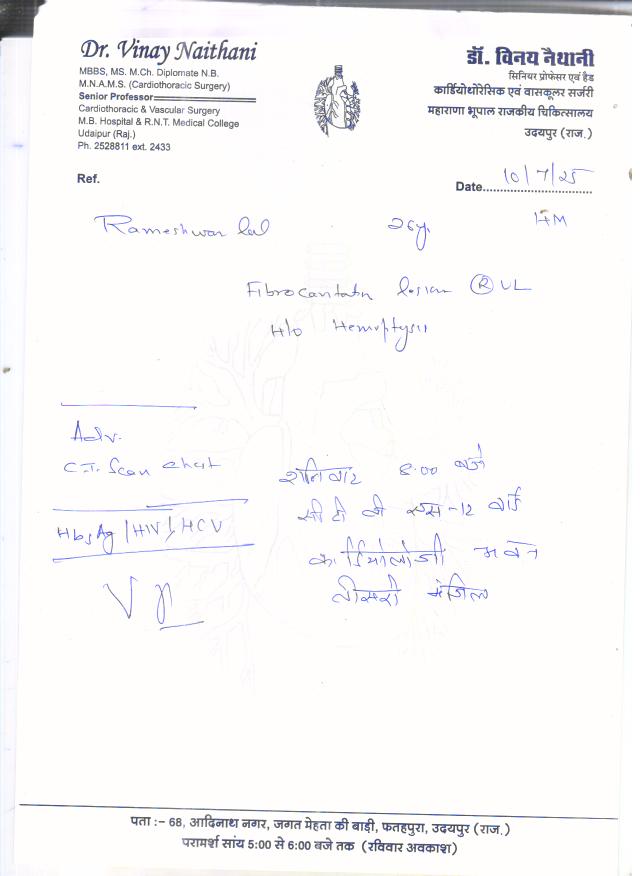 Dr. Vinay Naithani
MBBS, MS. M.Ch. Diplomate N.B.
M.N.A.M.S. (Cardiothoracic Surgery)
Senior Professor
Cardiothoracic & Vascular Surgery
M.B. Hospital & R.N.T. Medical College
Udaipur (Raj.)
Ph. 2528811 ext. 2433
डॉ. विनय नैथानी
सिनियर प्रोफेसर एवं हैड
कार्डियोथोरेसिक एवं वासकूलर सर्जरी
महाराणा भूपाल राजकीय चिकित्सालय
उदयपुर (राज.)
Ref.
Date 10/7/25
Rameshwar lal 26y.
Fibrocavitatn lesion (R) UL
H/o Hemoptysis
Adv.
C.T. Scan chest
HbsAg / HIV / HCV
शनिवार 8.00 बजे
सी टी वी एस-12 वार्ड
कार्डियोलोजी भवन
तीसरी मंजिल
पता :– 68, आदिनाथ नगर, जगत मेहता की बाड़ी, फतहपुरा, उदयपुर (राज.)
परामर्श सांय 5:00 से 6:00 बजे तक (रविवार अवकाश)